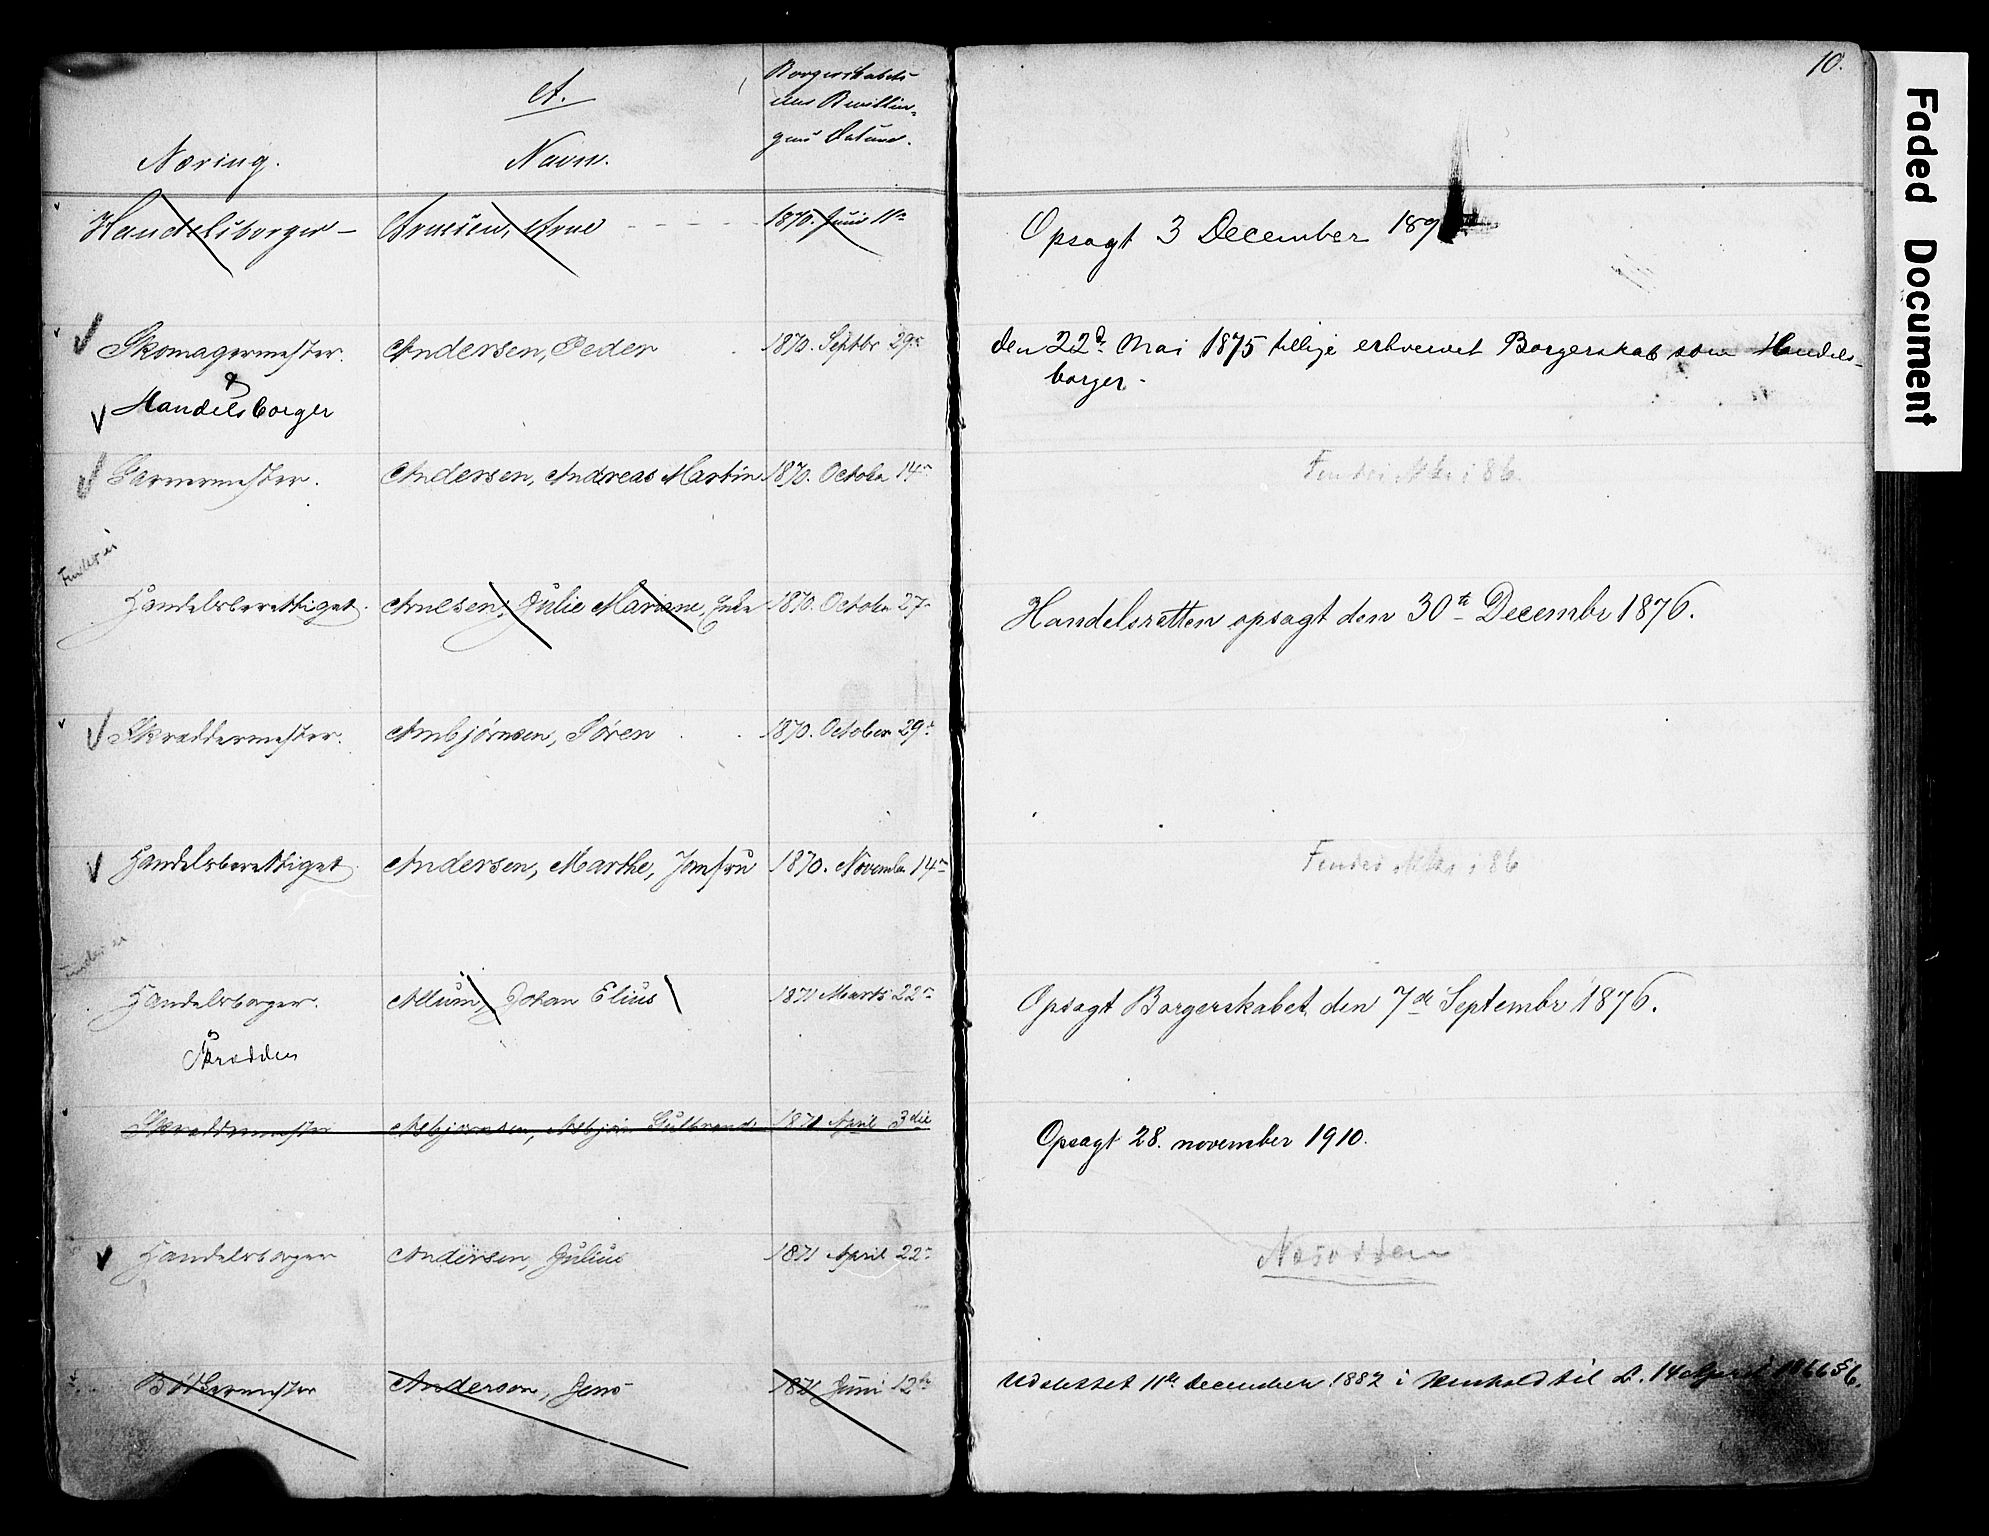 10.
A.
Næring.
Navn.
Borgerskabets
Bevillin-
gens Datum.
Handelsborger - Arnesen, Arne 1870. Juni 11te Opsagt 3 December 189
Skomagermester. Andersen, Peder 1870. Septbr 29de den 22d Mai 1875 tillige erhvervet Borgerskab som Handels-
borger.
&
Handelsborger
Garvermester. Andersen, Andreas Martin 1870. Octobr 14de Findes ikke i 86
Findes ei
Handelsberettiget. Arnesen, Julie Mariane, Enke 1870. Octobr 27. Handelsretten opsagt den 30te Decembr 1876.
Skræddermester. Ambjørnsen, Søren 1870. October 29de
Handelsberettiget Andersen, Marthe, Jomfru 1870. Novembr 14de Findes ikke i 86
Findes ei
Handelsborger. Allum, Johan Elius 1871 Marts 22de Opsagt Borgerskabet den 7de Septembr 1876.
Skrædder
Skræddermester Asbjørnsen, Asbjørn Gulbrand 1871 April 3die Opsagt 28. november 1910.
Handelsborger Andersen, Julius 1871 April 22de Nesodden
Bødkermester Anderson, Jens 1871 Juni 12te Udslettet 11te december 1882 i Henhold til L. 14 April 1866 § 6.
Faded Document